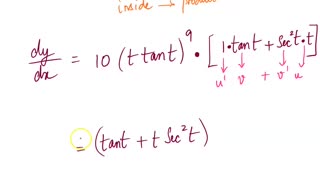 inside → product
dy/dx = 10 (t tant)⁹ • [1•tant + sec²t•t]
u' v + v' u
= (tant + t sec²t)